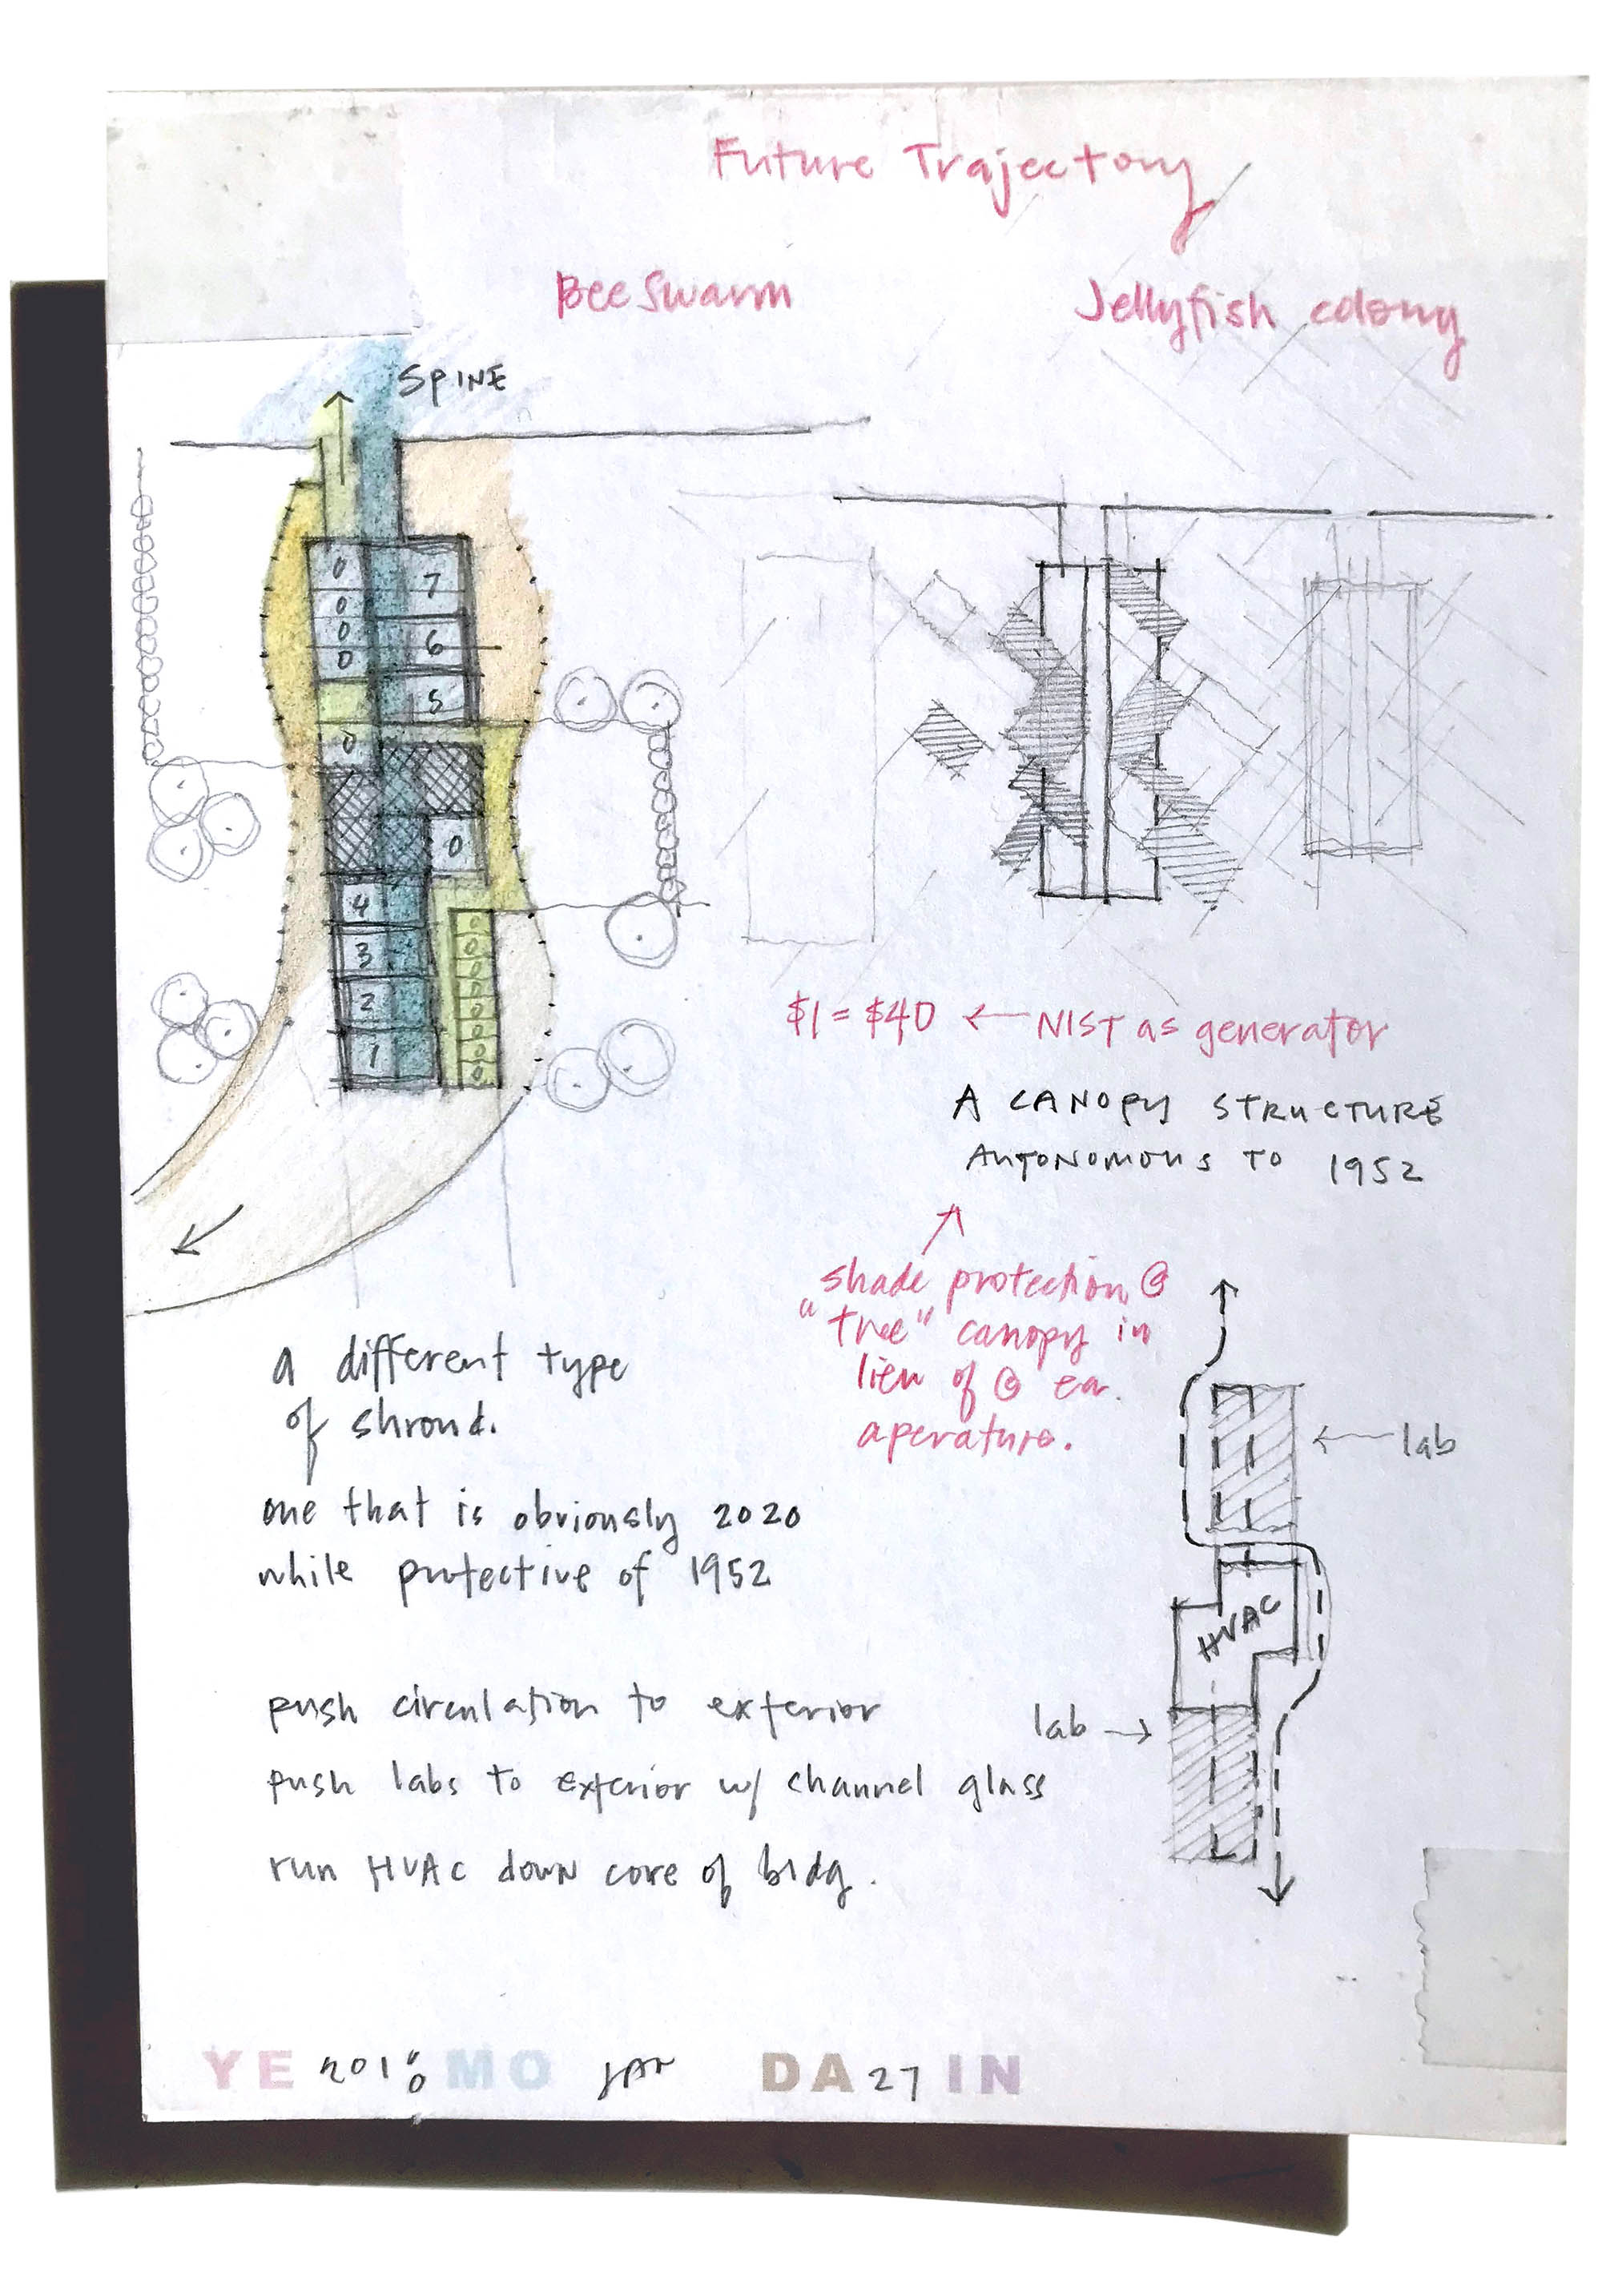 Future Trajectory
Bee Swarm
Jellyfish colony
SPINE
0
7
0
0
6
0
5
0
0
4
0
3
0
2
0
0
0
1
0
0
$1 = $40 ← NIST as generator
A CANOPY STRUCTURE
AUTONOMOUS TO 1952
shade protection @
"tree" canopy in
lieu of @ ea.
aperature.
a different type
of shroud.
one that is obviously 2020
while protective of 1952
push circulation to exterior
push labs to exterior w/ channel glass
run HVAC down core of bldg.
← lab
HVAC
lab →
YE 2018 MO JAN DA 27 IN